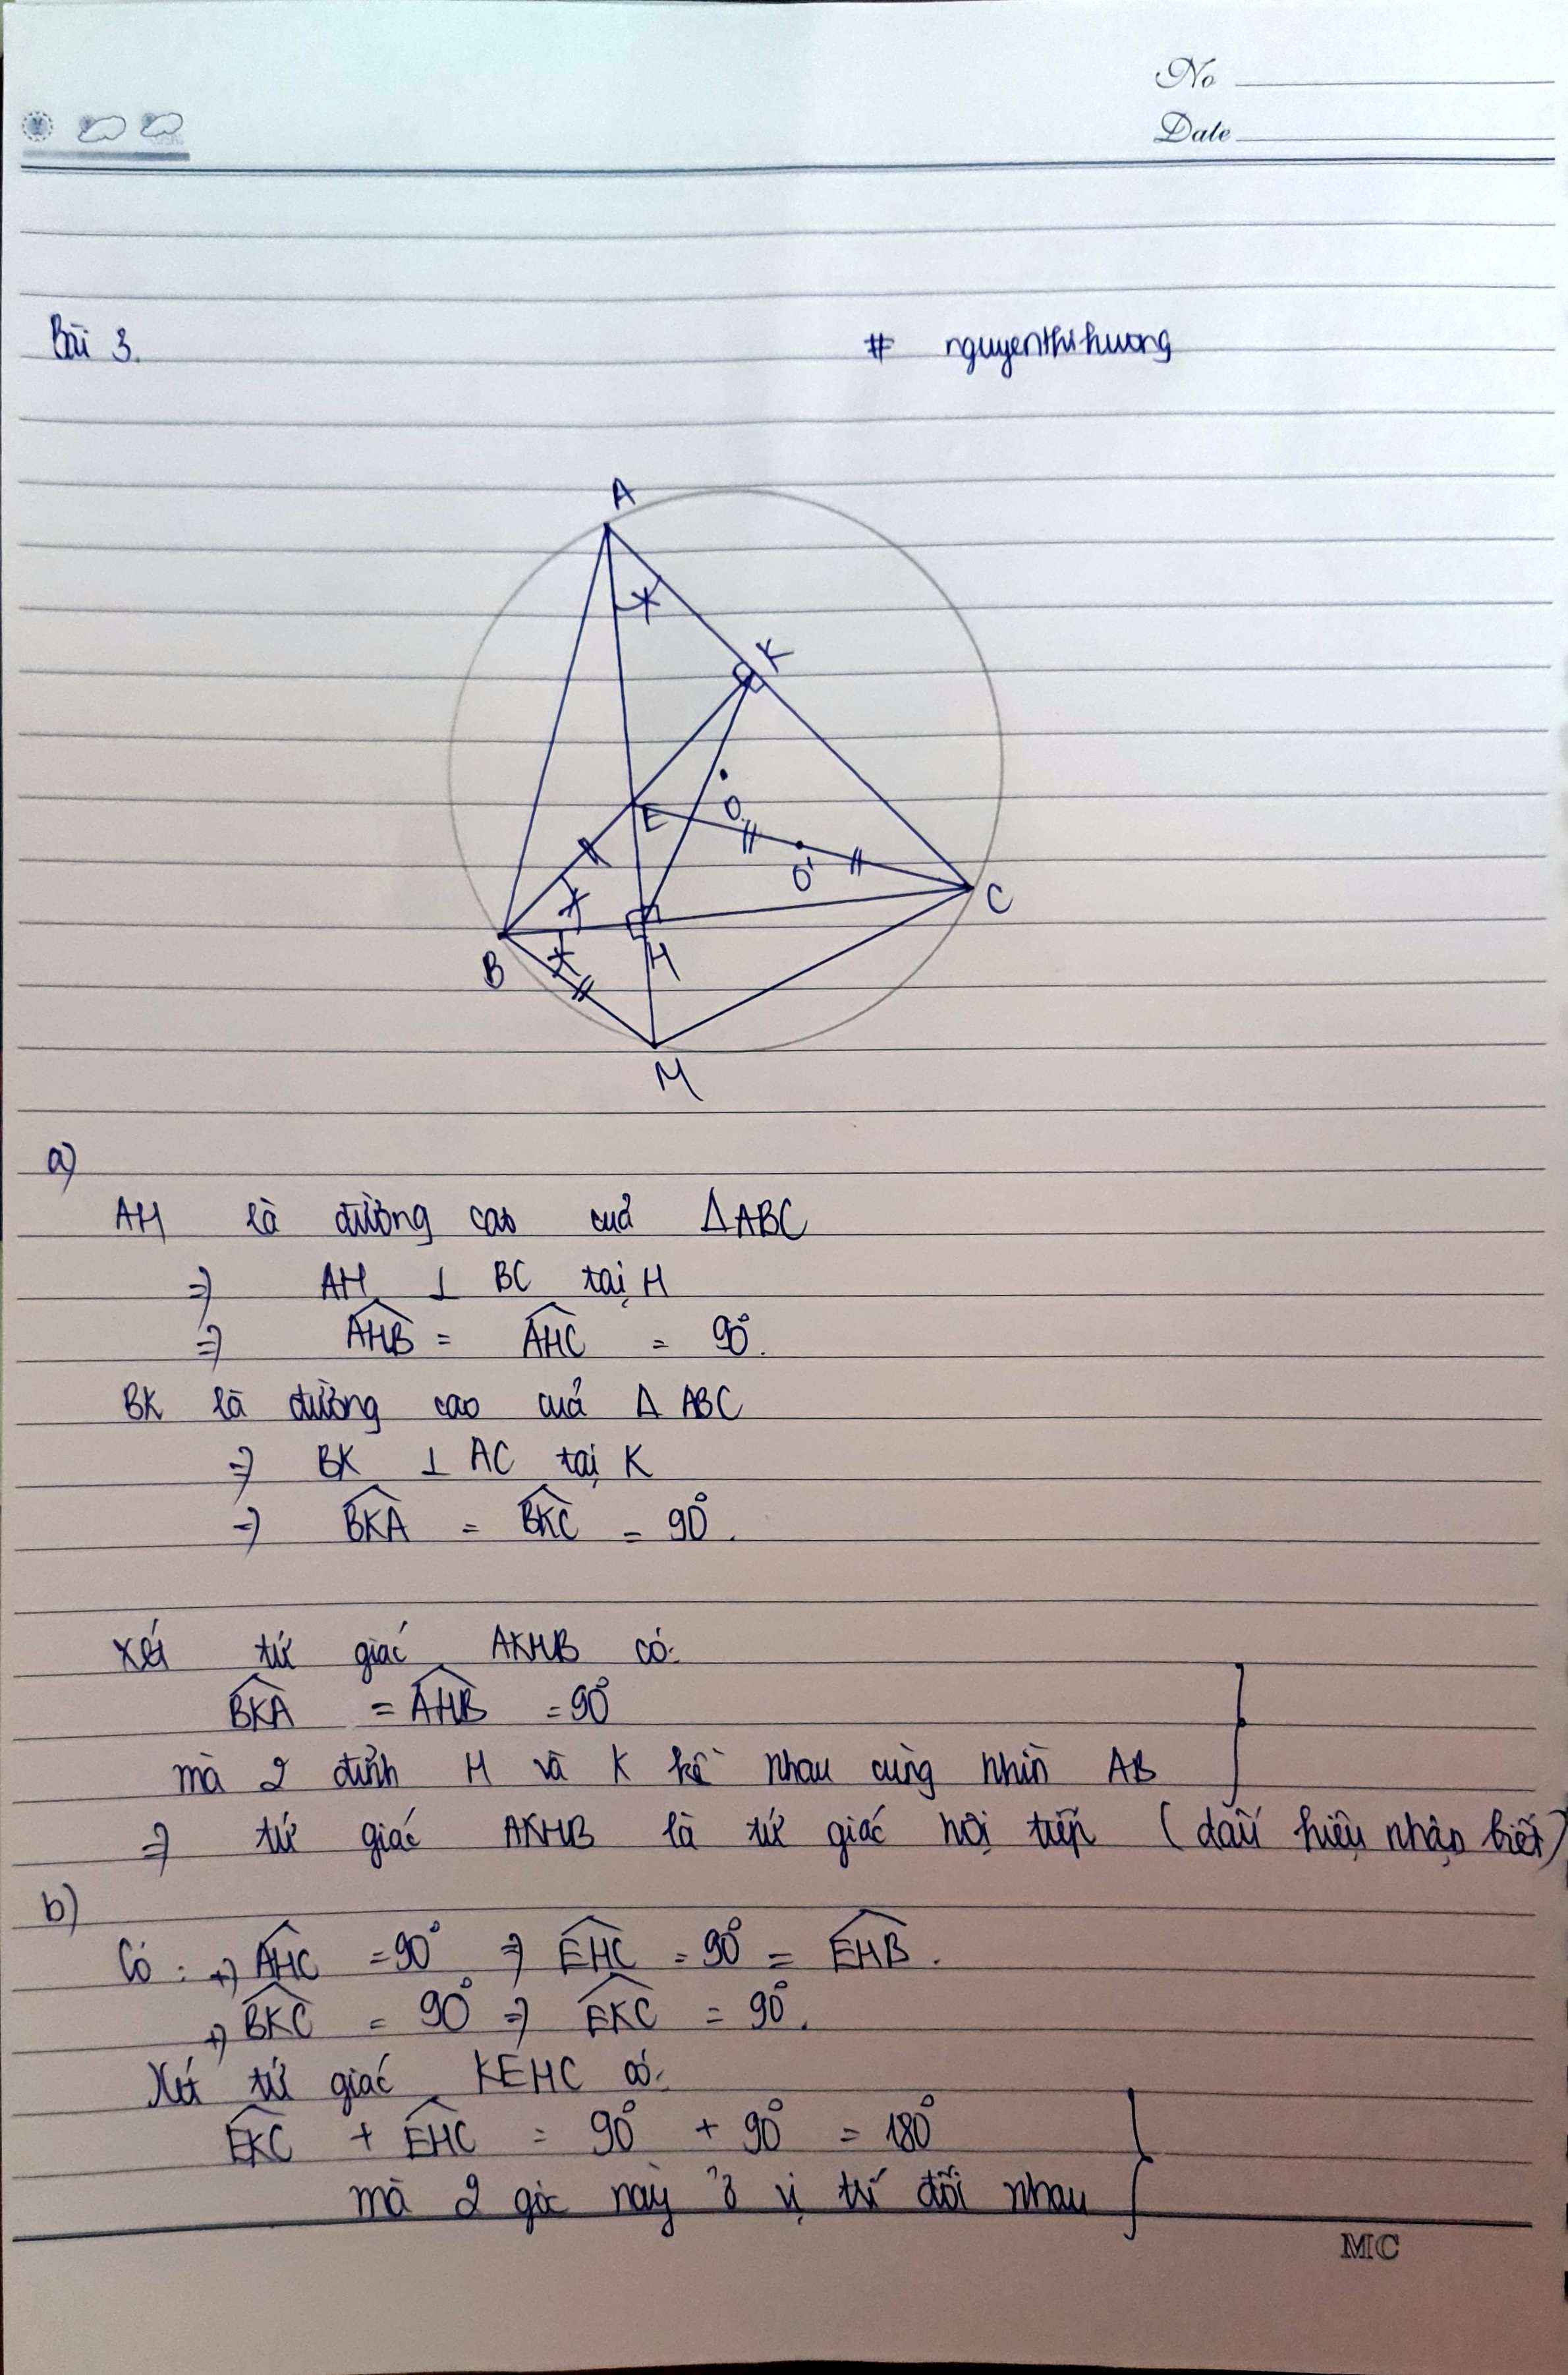 No
Date
Bài 3.
# nguyenthihuong
A
K
E
O
O'
C
B
H
M
a)
AH là đường cao của ΔABC
=> AH ⊥ BC tại H
=> \widehat{AHB} = \widehat{AHC} = 90°.
BK là đường cao của Δ ABC
=> BK ⊥ AC tại K
=> \widehat{BKA} = \widehat{BKC} = 90°.
Xét tứ giác AKHB có:
\widehat{BKA} = \widehat{AHB} = 90°
mà 2 đỉnh H và K kề nhau cùng nhìn AB
=> tứ giác AKHB là tứ giác nội tiếp (dấu hiệu nhận biết)
b)
Có: +) \widehat{AHC} = 90° => \widehat{EHC} = 90° = \widehat{EHB}.
+) \widehat{BKC} = 90° => \widehat{EKC} = 90°.
Xét tứ giác KEHC có:
\widehat{EKC} + \widehat{EHC} = 90° + 90° = 180°
mà 2 góc này ở vị trí đối nhau
MC